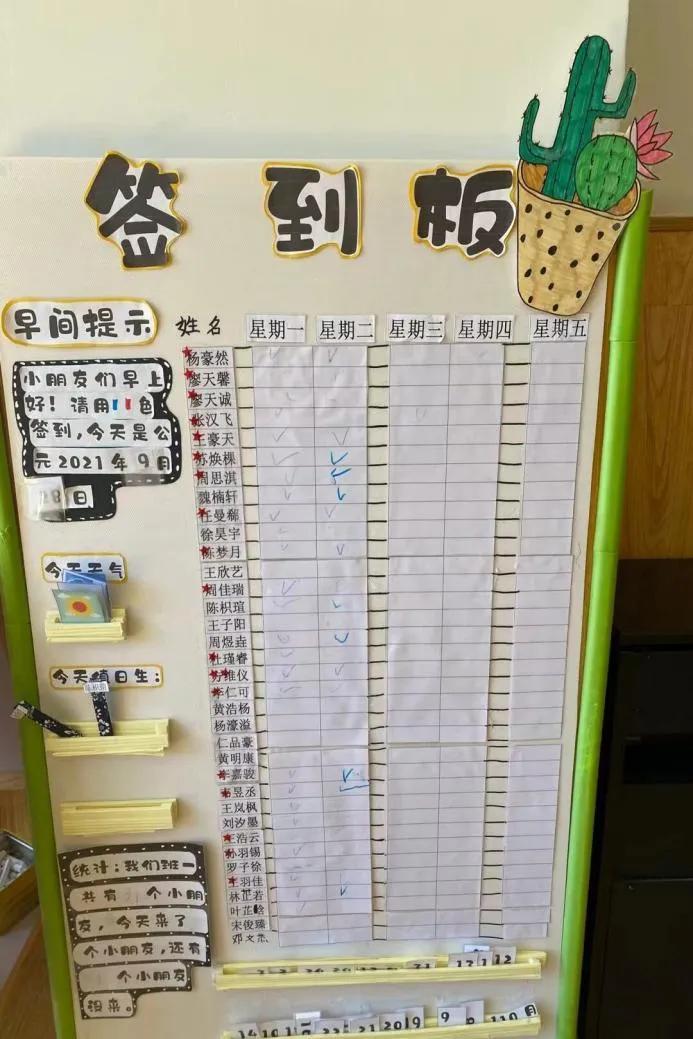 签到板
早间提示
小朋友们早上
好！请用 色
签到，今天是公
元2021年9月
28日
今天天气
今天值日生：
统计：我们班一
共有 个小朋
友，今天来了
个小朋友，还有
个小朋友
没来。
姓名 星期一 星期二 星期三 星期四 星期五
杨豪然
廖天馨
廖天诚
张汉飞
王豪天
苏焕棵
周思淇
魏楠轩
任曼郗
徐昊宇
陈梦月
王欣艺
周佳瑞
陈枳瑄
王子阳
周煜垚
杜瑾睿
苏维仪
李仁可
黄浩杨
杨濠溢
仁品豪
黄明康
李嘉骏
昱丞
王岚枫
刘汐墨
王浩云
孙羽锡
罗子徐
王羽佳
林芷若
叶芷晗
宋俊臻
邓文杰
31 13 1 12
14 10 1 22 21 20 19 9 月